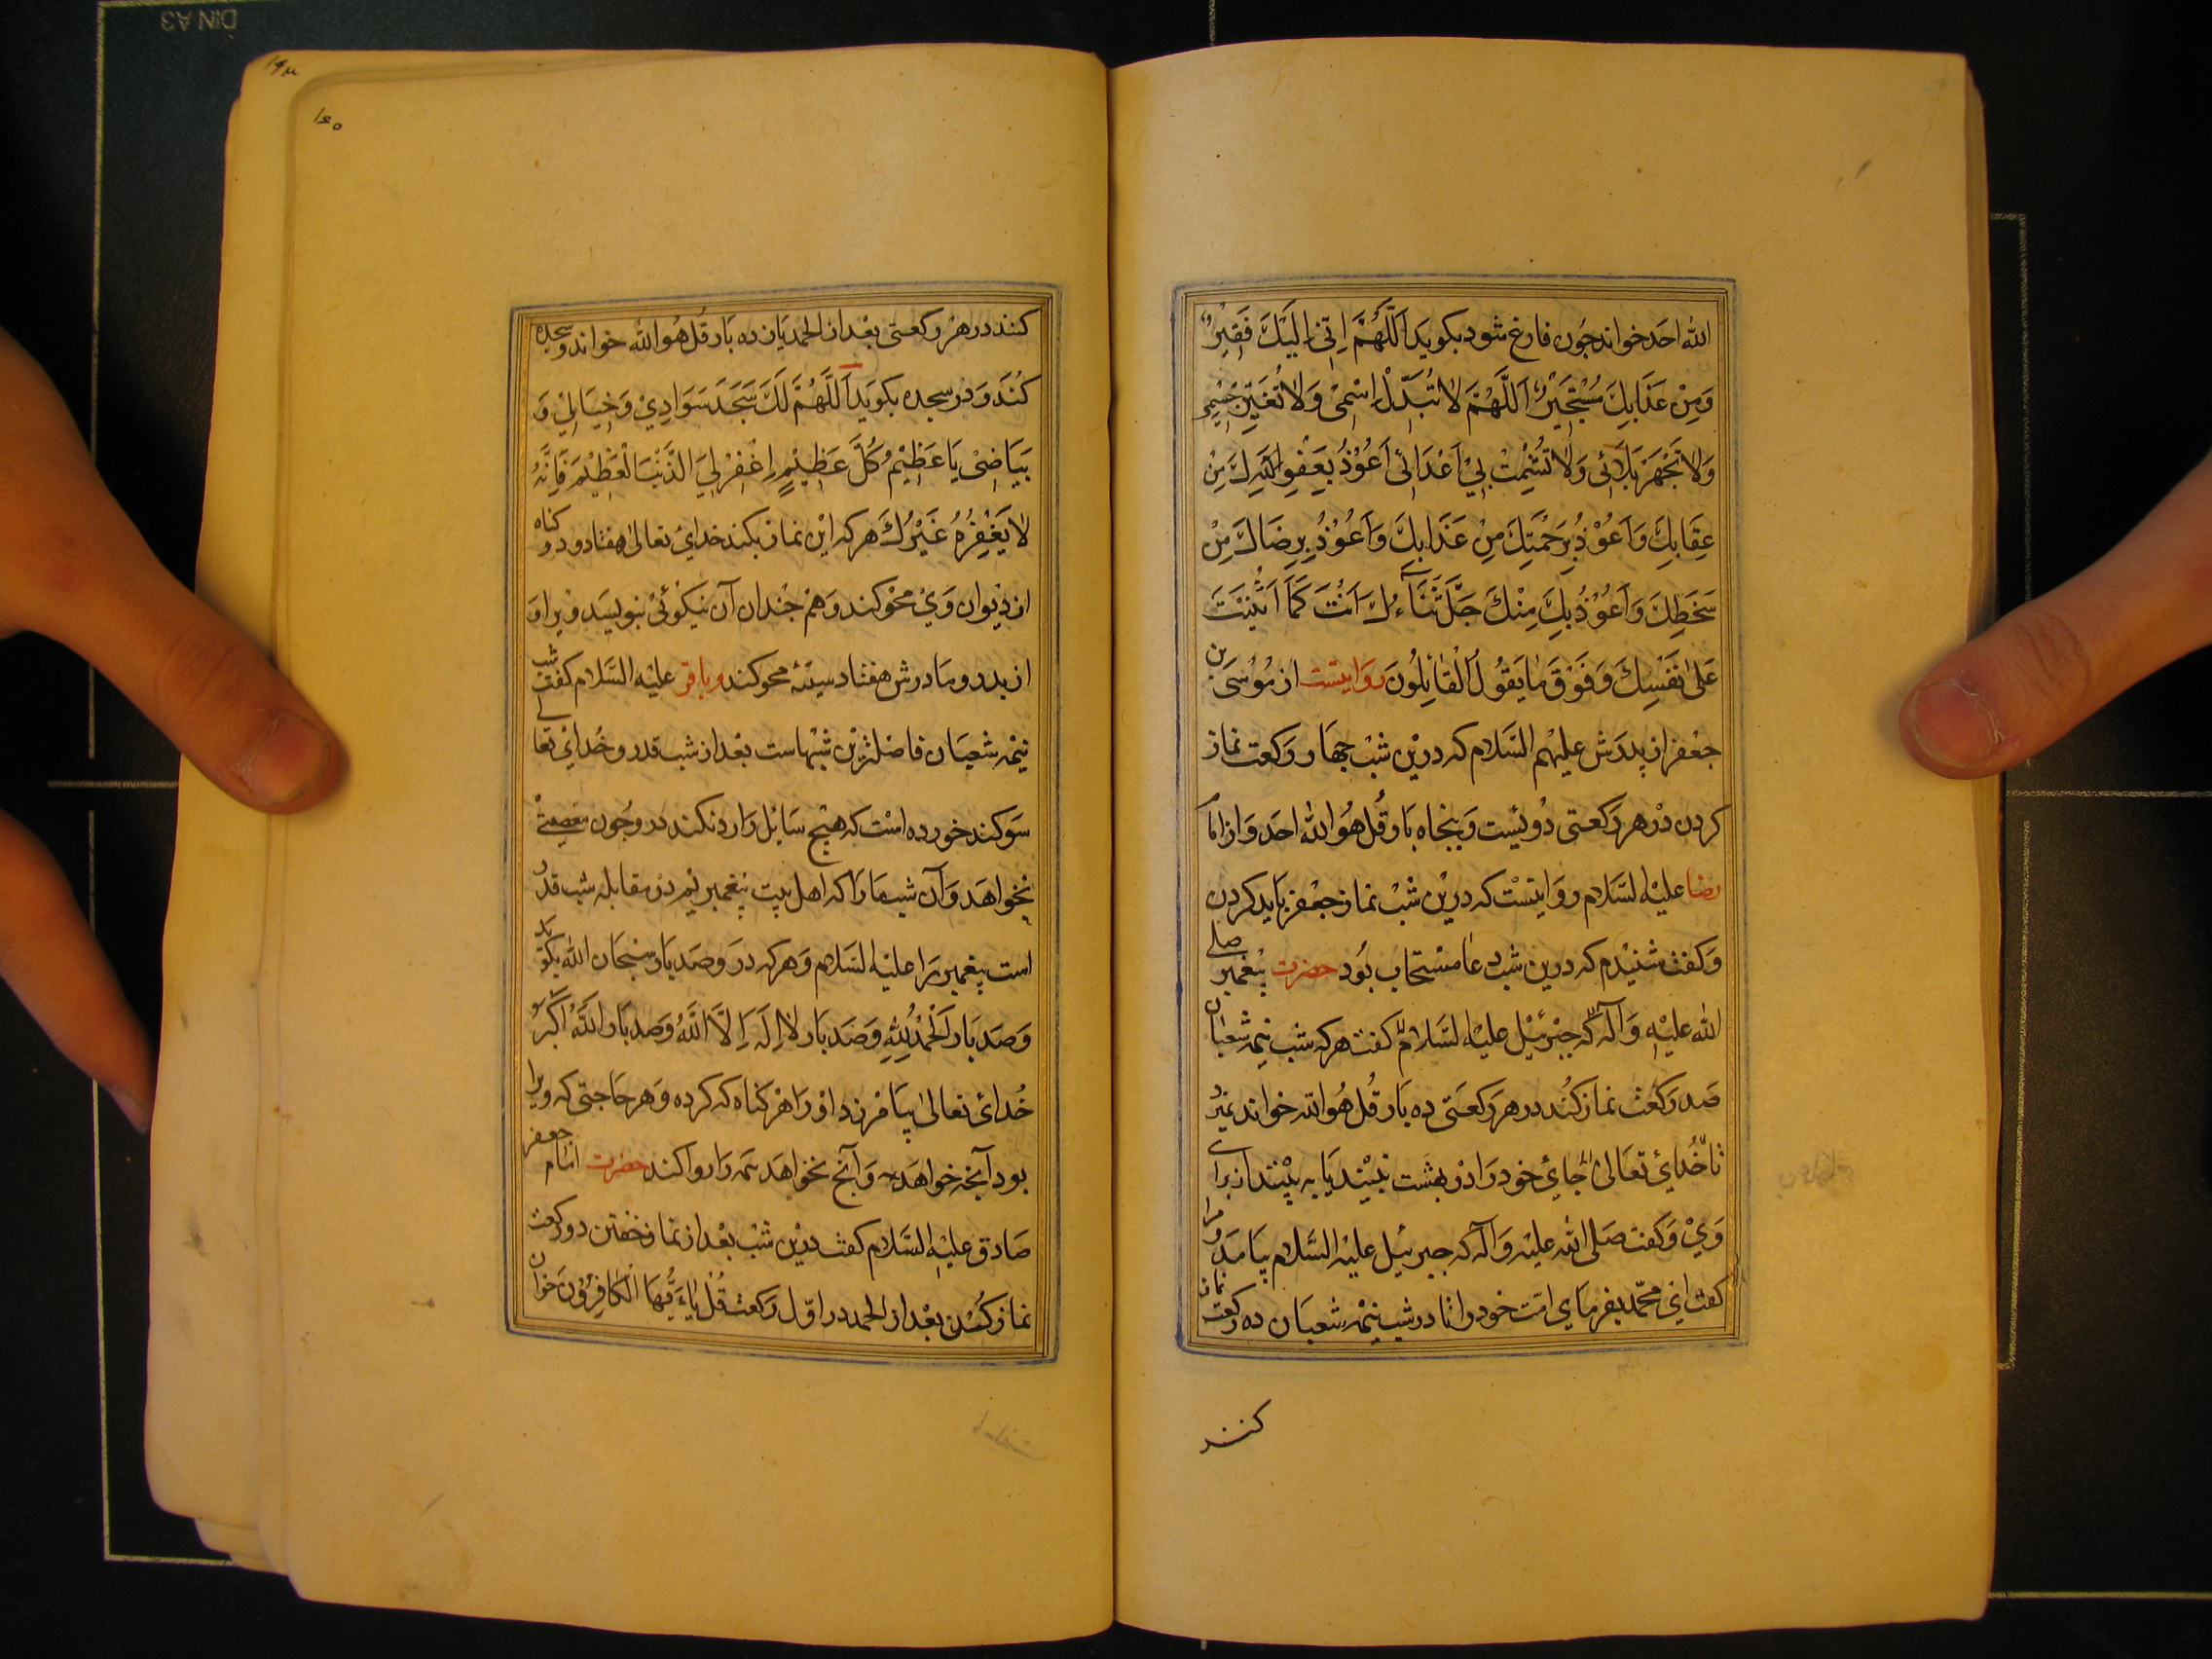 الله احد خواند چون فارغ شود بکوید اَللّٰهُمَّ اِنّی اِلَیْكَ فَقِیْرٌ
وَمِنْ عَذَابِكَ مُسْتَجِیْرٌ اَللّٰهُمَّ لَا تُبَدِّلْ اِسْمِیْ وَلَا تُغَیِّرْ جِسْمِیْ
وَلَا تَجْهَرْ بَلَائِی وَلَا تُشْمِتْ بِیْ اَعْدَائِی اَعُوْذُ بِعَفْوِكَ مِنْ
عِقَابِكَ وَاَعُوْذُ بِرَحْمَتِكَ مِنْ عَذَابِكَ وَاَعُوْذُ بِرِضَاكَ مِنْ
سَخَطِكَ وَاَعُوْذُ بِكَ مِنْكَ جَلَّ ثَنَاءُكَ اَنْتَ كَمَا اَثْنَیْتَ
عَلٰی نَفْسِكَ وَفَوْقَ مَا یَقُوْلُ الْقَائِلُوْنَ روایتست از مُوْسَی بن
جعفر از پدرش علیهم السّلام که درین شب چهار رکعت نماز
کردن در هر رکعتی دویست وپنجاه بار قُل هُوَ الله احد واز امام
رضا علیه السّلام روایتست که درین شب نماز جعفر باید کردن
وکفت شنیدم که درین شب دعا مستجاب بود حضرت پیغمبر صلی
الله علیه وآله که جبرئیل علیه السّلام کفت هرکه شب نیمه شعبان
صد رکعت نماز کند در هر رکعتی ده بار قُل هُو الله خواند نمیرد
تا خدای تعالیٰ جای خود را در بهشت نبیند یا به بینند از برای
وی وکفت صلی الله علیه وآله که جبرئیل علیه السّلام بیامد ومرا
کفت ای محمّد بفرمای امّت خود را تا در شب نیمه شعبان ده رکعت نماز
کنند
کنند در هر رکعتی بعد از الحمد یازده بار قُل هُوَ الله خواند وسجده
کند ودر سجده بکوید اَللّٰهُمَّ لَكَ سَجَدَ سَوَادِیْ وَخِیَالِیْ وَ
بَیَاضِیْ یَا عَظِیْمُ کُلِّ عَظِیْمٍ اِغْفِرْ لِیَ الذَّنْبَ الْعَظِیْمَ فَاِنَّهُ
لَا یَغْفِرُهُ غَیْرُكَ هرکه این نماز بکند خدای تعالیٰ هفتاد ودو کناه
از دیوان وی محو کند وهم چندان آن نیکوئی بنویسد ویرا و
از پدر ومادرش هفتاد سیئه محو کند وباقر علیه السّلام کفت شب
نیمه شعبان فاضلترین شبهاست بعد از شب قدر وخدای تعالی
سوکند خورده است که هیچ سائل را رد نکند در وچون معصیتی
نخواهد وآن شب ما را که اهل بیت پیغمبریم در مقابله شب قدر
است پیغمبر را علیه السّلام وهرکه درو صد بار سبحان الله بکوید
وصد بار اَلْحَمْدُ لِلّٰهِ وصد بار لَا اِلٰهَ اِلَّا اللّٰهُ وصد بار اللّٰهُ اَکْبَرُ
خدای تعالیٰ بیامرزد او را هر کناه که کرده وهر حاجتی که ویرا
بود آنچه خواهد وآنچ نخواهد همه را روا کند حضرت امام جعفر
صادق علیه السّلام کفت درین شب بعد از نماز خفتن دو رکعت
نماز کنند بعد از الحمد در اوّل رکعت قُل یَا اَیُّهَا الْکَافِرُوْنَ خوان